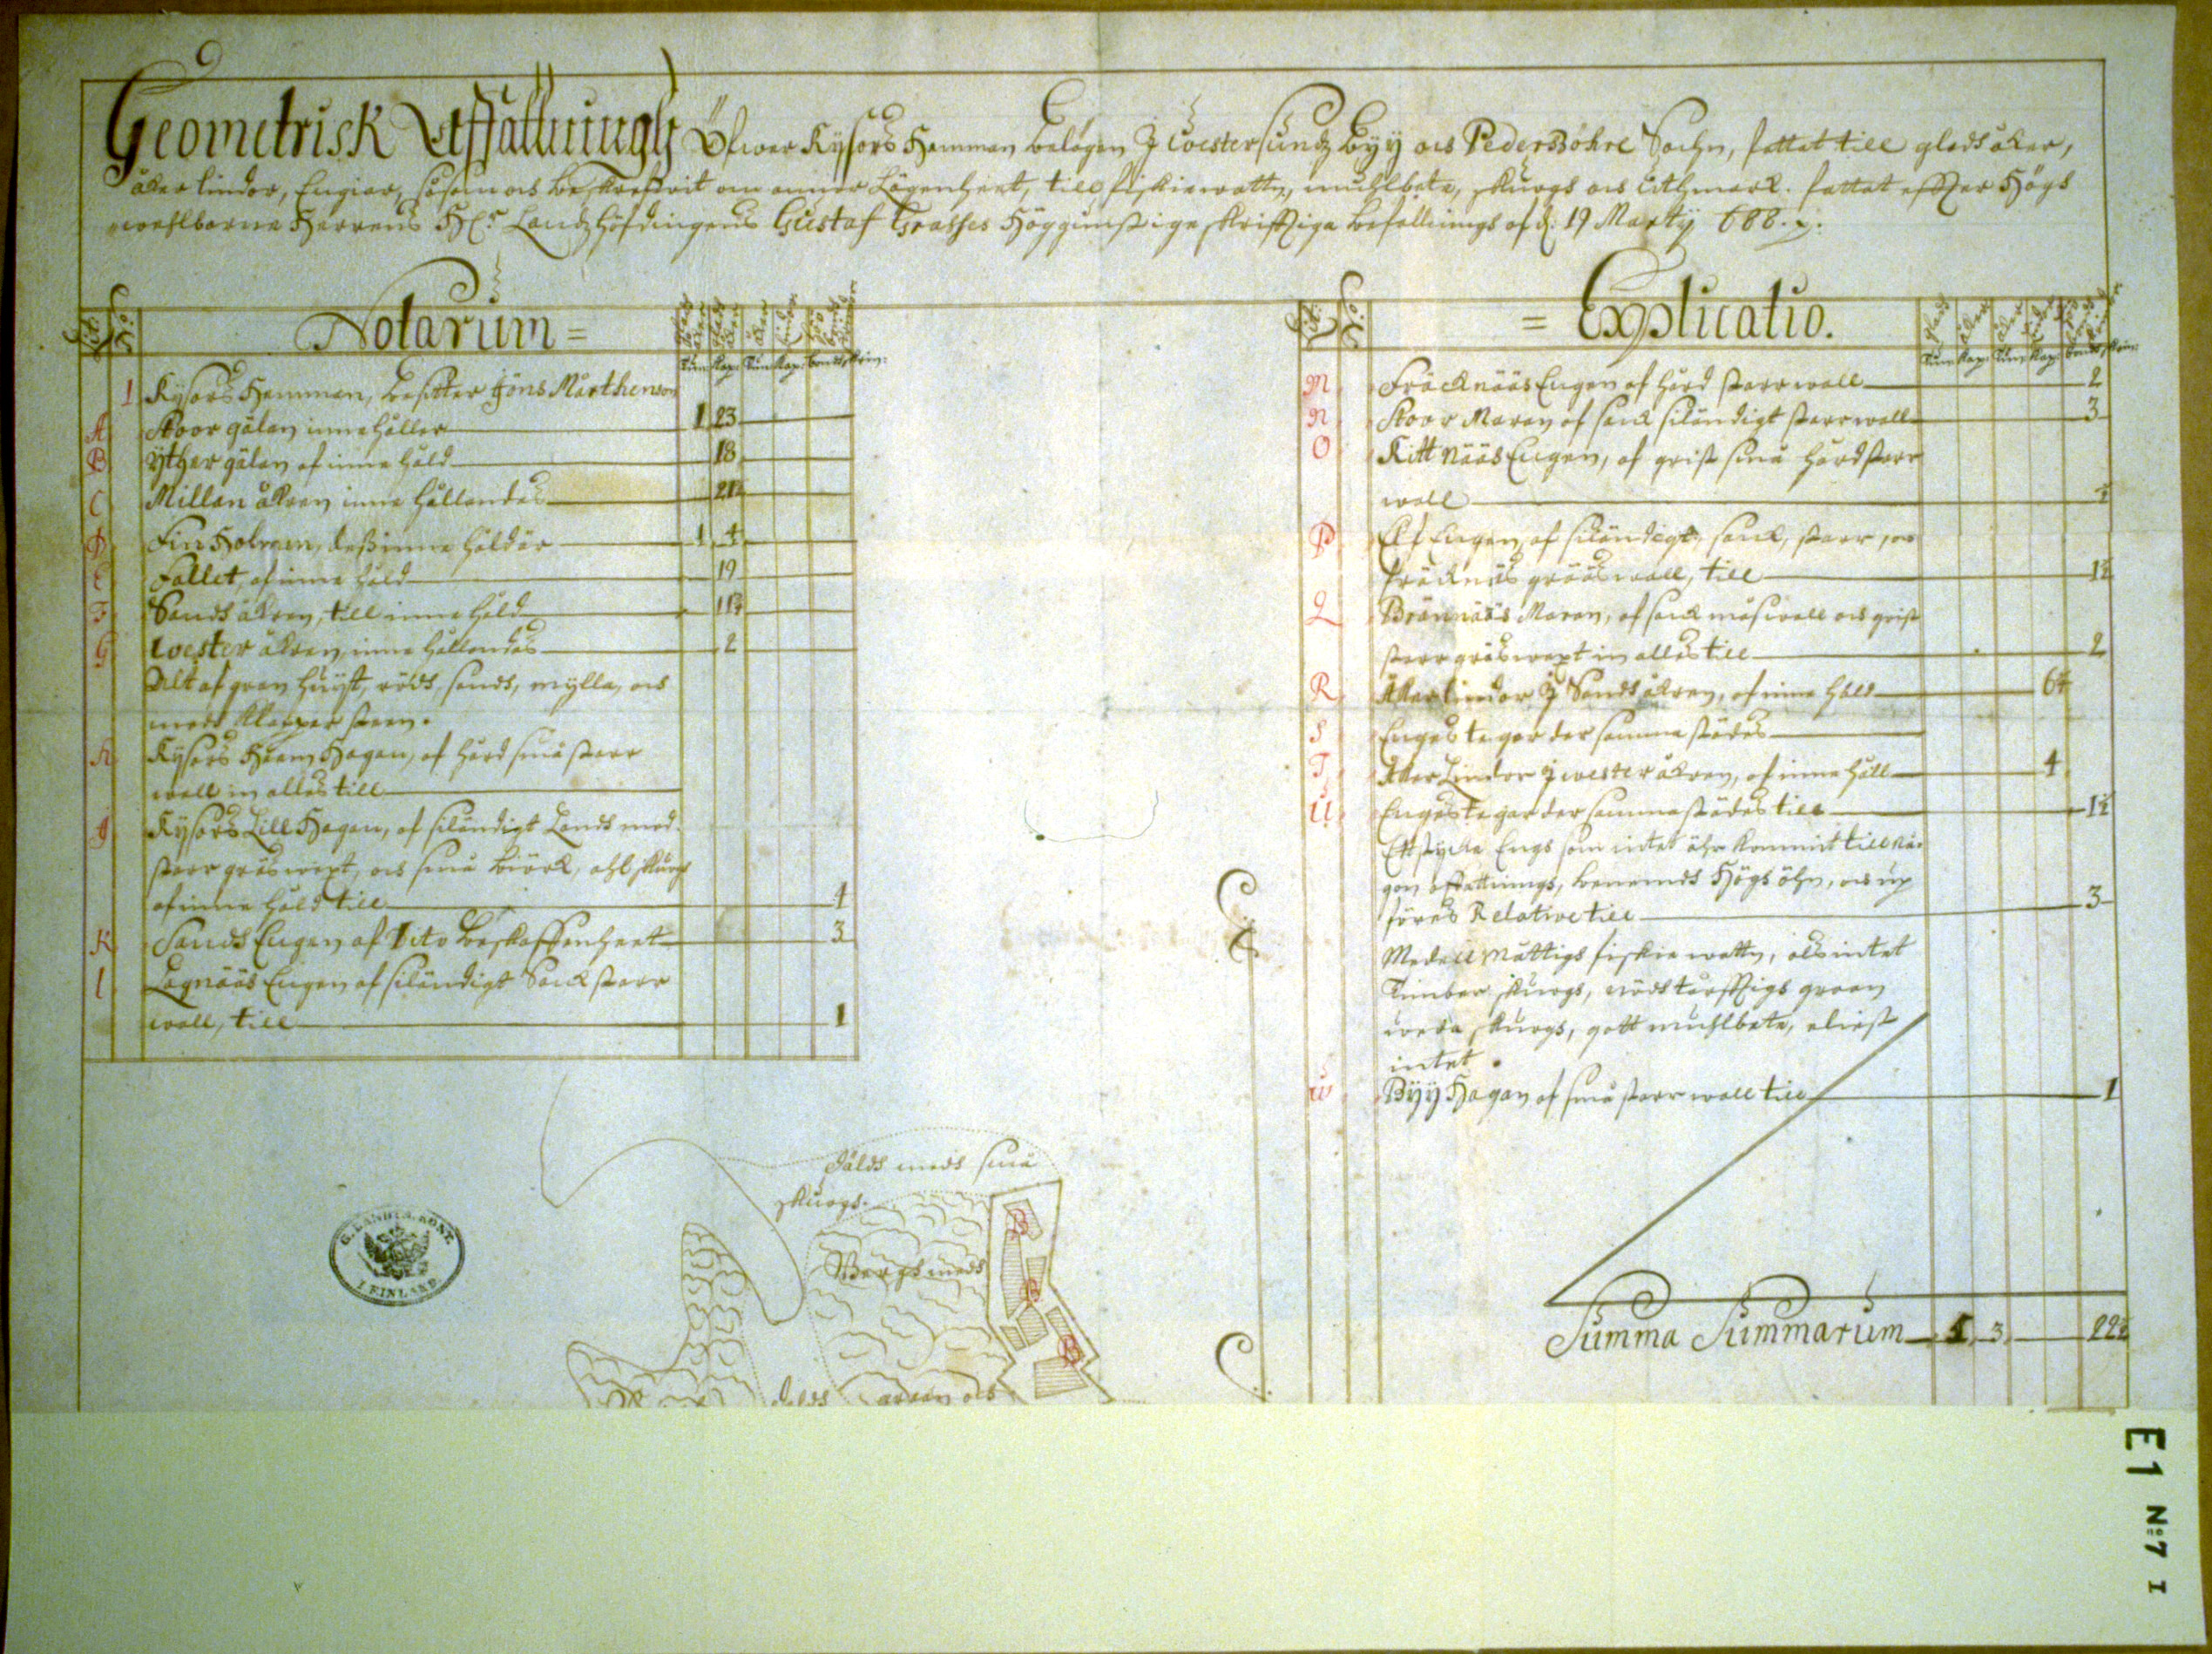 Geometrisk Affattningh Öfwer Kysors Hemman belägen J Westersundz Byy och Pedersöhre Sochn, fattat till gladsåker,
åkerlindor, Engiar, såsom och beskrefwit om annor Lägenheet, till fiskiewattn, muhlbete, skougs och uthmark. fattat effter Högh
wehlborne Herrens H:r Landzhöfdingens Gustaf Grasses Höggunstige skrifftliga befallnings af d: 19 Marty 688.
Notarum =
1 Kysors Hemman, besitter Jöns Mårthenson
A Stoor gälan innehåller 1 23
B Ÿther gälan af innehåld 18
C Millan åkren innehållandes
D Finholmen, dess innehåld är 1 4
E Fallet, af innehåld 19
F Sands åkren, till innehåld
G Wester åkren, innehållandes 2
Alt af gran huÿt, röds, sands, mylla, och
meds klapper steen.
H Kysors Heem Hagan, af hård små starr
wall in alles till
J Kysors Lill Hagen, af sidländigt Lands med
starr gräswext, och små biörk, ahl skougs
af innehåld till 4
K Sands Engen af Dito beskaffenheet 3
L Lagnääs Engen af sidländigt Sank starr
wall, till 1
= Explicatio.
M Fräcknääs Engen af hård starrwall 2
N Stoor Maren af sank sidländigt starrwall 3
O Kittnääs Engen, af grist små hård starr
wall ½
P Elf Engen, af sidländigt, sank, starr, och
fräcknäs grääswall, till 1½
Q Brännääs Maren, af sank måswall och grist
starr gräswext in alles till 2
R Åkerlindor J Sandsåkren, af innehåld
S Enges tegar der sammastädes
T Åker Lindor J westeråkren, af innehåll 4
U Enges tegar der sammastädes till 1½
Ett stycke Engs som intet ähr kommit till nå-
gon affattnings, benemds Högs öhn, och up
föres Relative till 3
Medelmåttigs fiskiewattn, als intet
Timber skougs, nödtorfftigs graan
wedu skougs, gott muhlbete, eliest
intet.
W Byy Hagan af små starrwall till 1
Summa Summarum 5 3 22½
Dälds meds små
skougs.
Bergs meds
G. LANDTM. KONT.
I FINLAND
E1 Nº7 I